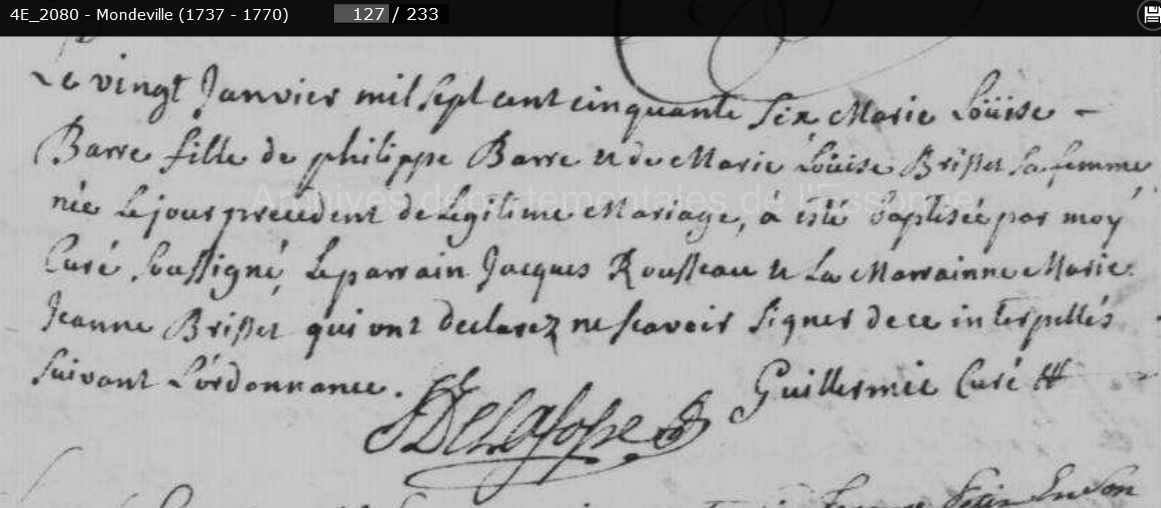 4E_2080 - Mondeville (1737 - 1770) 127 / 233
Le vingt Janvier mil sept cent cinquante six Marie Loüise -
Barre fille de philippe Barre et de Marie Loüise Brisset sa femme
Archives départementales de l'Essonne
née le jour precedent de Legitime Mariage, a esté baptisée par moy
Curé soussigné, Le parrain Jacques Rousseau et La Marrainne Marie
Jeanne Brisset qui ont declarez ne scavoir signer de ce interpellés
suivant L'ordonnance. Guillermie Curé
Delafosse